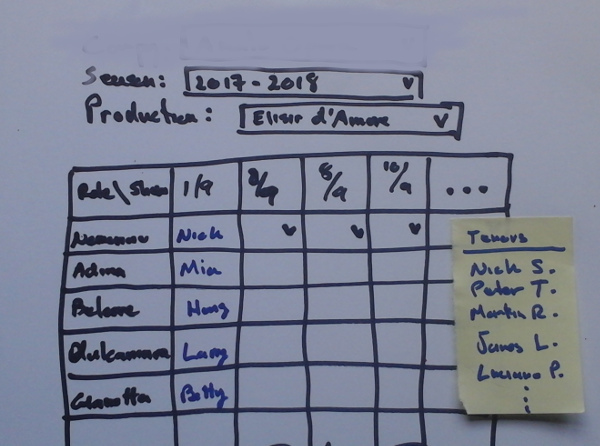 Season: 2017-2018
Production: Elisir d'Amore
Role\Show 1/9 8/9 10/9 ...
Nemorino Nick
Adina Mia
Belcore
Dulcamara Larry
Gianetta Betty
Tenors
Nick S.
Peter T.
Martin R.
James L.
Luciano P.